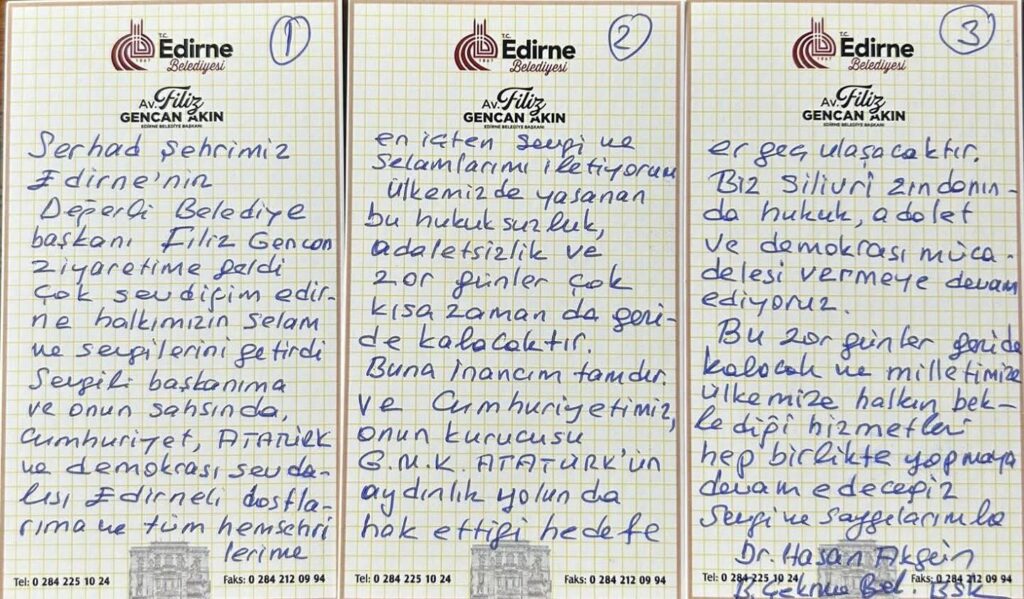 T.C.
Edirne
1867
Belediyesi
1
Av. Filiz
GENCAN AKIN
EDİRNE BELEDİYE BAŞKANI
Serhad şehrimiz
Edirne'nin
Değerli Belediye
başkanı Filiz Gencan
ziyaretime geldi
Çok sevdiğim edir-
ne halkımızın selam
ve sevgilerini getirdi
Sevgili başkanıma
ve onun şahsında,
Cumhuriyet, ATATÜRK
ve demokrası sevda-
lısı Edirneli dostla-
rıma ve tüm hemşehri
lerime
Tel: 0 284 225 10 24
Faks: 0 284 212 09 94
T.C.
Edirne
1867
Belediyesi
2
Av. Filiz
GENCAN AKIN
EDİRNE BELEDİYE BAŞKANI
en içten sevgi ve
selamlarımı iletiyorum
Ülkemizde yaşanan
bu hukuksuzluk,
adaletsizlik ve
zor günler çok
kısa zaman da geri-
de kalacaktır.
Buna inancım tamdır.
ve Cumhuriyetimiz,
onun kurucusu
G.M.K. ATATÜRK'ün
aydınlık yolunda
hak ettiği hedefe
Tel: 0 284 225 10 24
Faks: 0 284 212 09 94
T.C.
Edirne
1867
Belediyesi
3
Av. Filiz
GENCAN AKIN
EDİRNE BELEDİYE BAŞKANI
er geç ulaşacaktır.
Biz Silivri zındanın-
da hukuk, adalet
ve demokrası müca-
delesi vermeye devam
ediyoruz.
Bu zor günler geride
kalacak ve milletimize
ülkemize halkın bek-
lediği hizmetleri
hep birlikte yapmaya
devam edeceğiz
Sevgi ve saygılarımla
Dr. Hasan Akgün
B. Çekmece Bel. Bşk
Tel: 0 284 225 10 24
Faks: 0 284 212 09 94